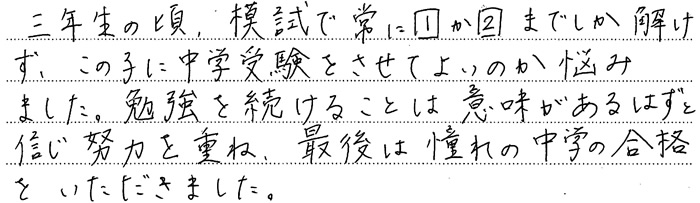 三年生の頃、模試で常に1か2までしか解け
ず、この子に中学受験をさせてよいのか悩み
ました。勉強を続けることは意味があるはずと
信じ努力を重ね、最後は憧れの中学の合格
をいただきました。